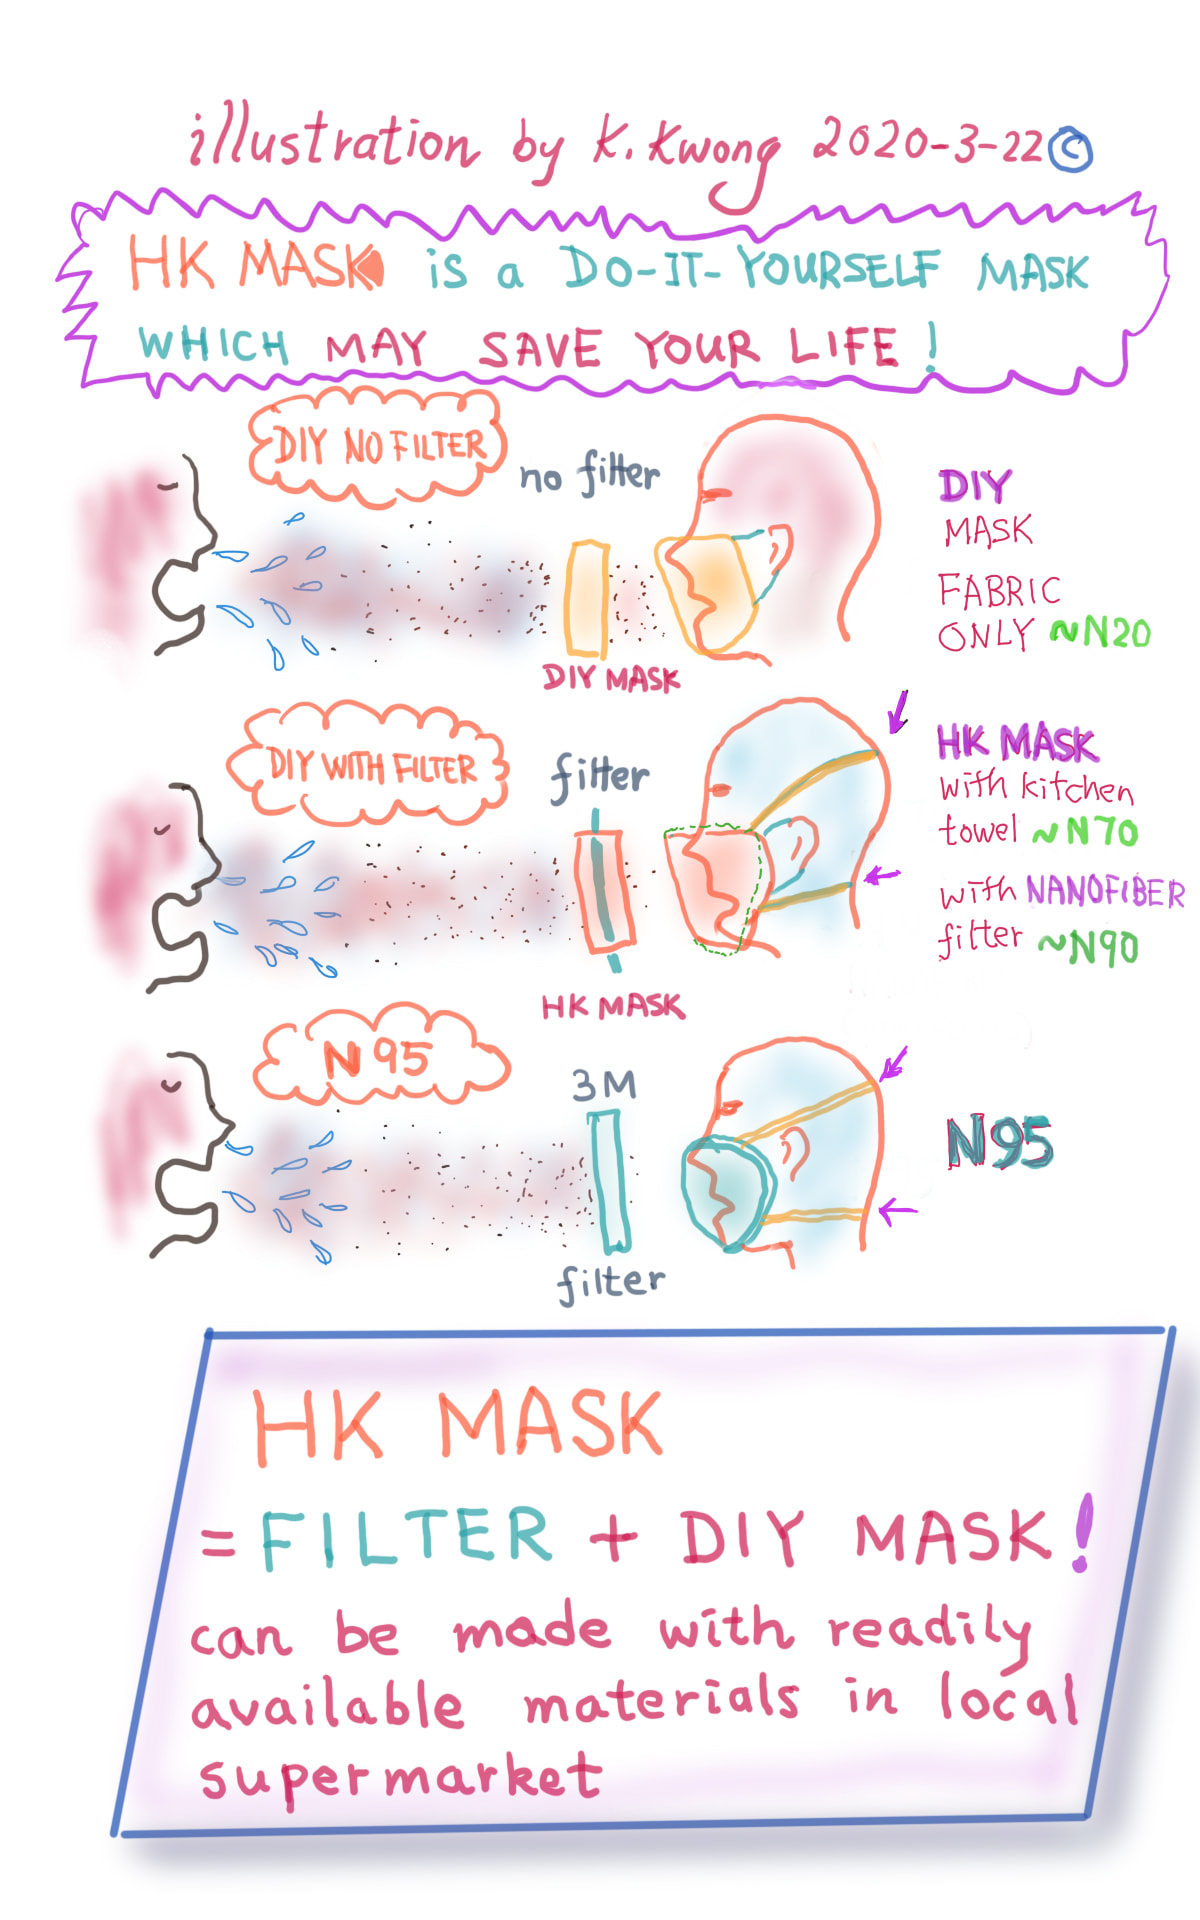 illustration by K. Kwong 2020-3-22©
HK MASK is a DO-IT-YOURSELF MASK
WHICH MAY SAVE YOUR LIFE!
DIY NO FILTER
no filter
DIY MASK
DIY
MASK
FABRIC
ONLY ~N20
DIY WITH FILTER
filter
HK MASK
HK MASK
with kitchen
towel ~N70
with NANOFIBER
filter ~N90
N95
3M
filter
N95
HK MASK
= FILTER + DIY MASK!
can be made with readily
available materials in local
supermarket